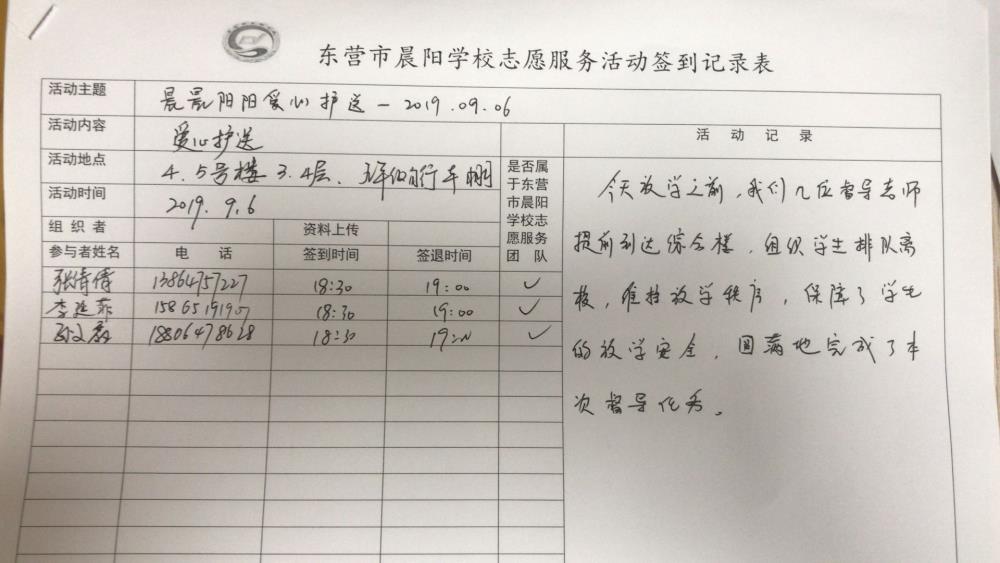 东营市晨阳学校志愿服务活动签到记录表
活动主题 晨晨阳阳爱心护送—2019.09.06
活动内容 爱心护送
活动地点 4.5号楼3.4层、
活动时间 2019.9.6
组织者 资料上传
参与者姓名 电话 签到时间 签退时间
是否属
于东营
市晨阳
学校志
愿服务
团队
张倩倩 13864757227 18:30 19:00 ✓
李延菲 18:30 19:00 ✓
18806478628 18:30 ✓
活动记录
今天放学之前,我们几位督导老师
提前到达综合楼,组织学生排队离
校,维持放学秩序,保障了学生
的放学安全,圆满地完成了本
次督导任务。